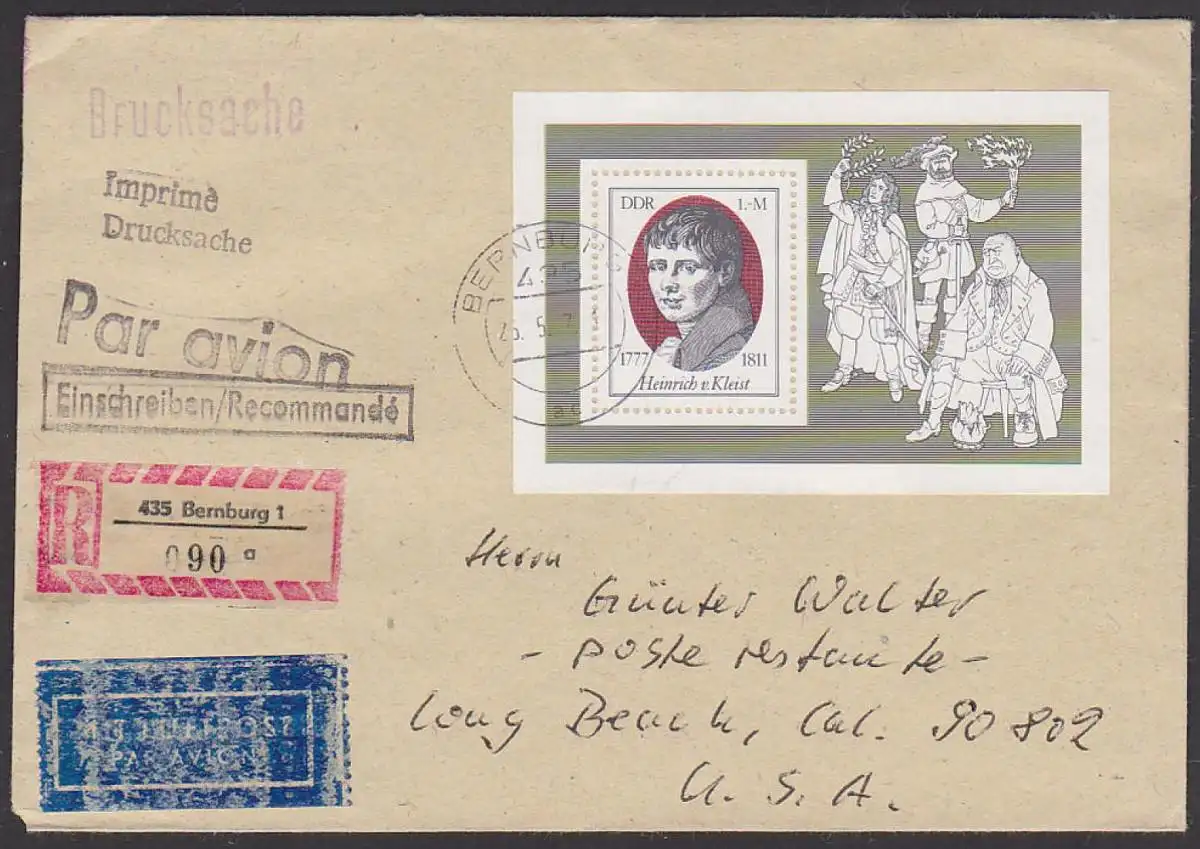 Drucksache
Imprimé
Drucksache
Par avion
Einschreiben/Recommandé
R
435 Bernburg 1
090 a
MIT LUFTPOST
PAR AVION
DDR 1.-M
1777 1811
Heinrich v. Kleist
BERNBURG
435
ac
Herrn
Günter Walter
- poste restante -
Long Beach, Cal. 90802
U.S.A.